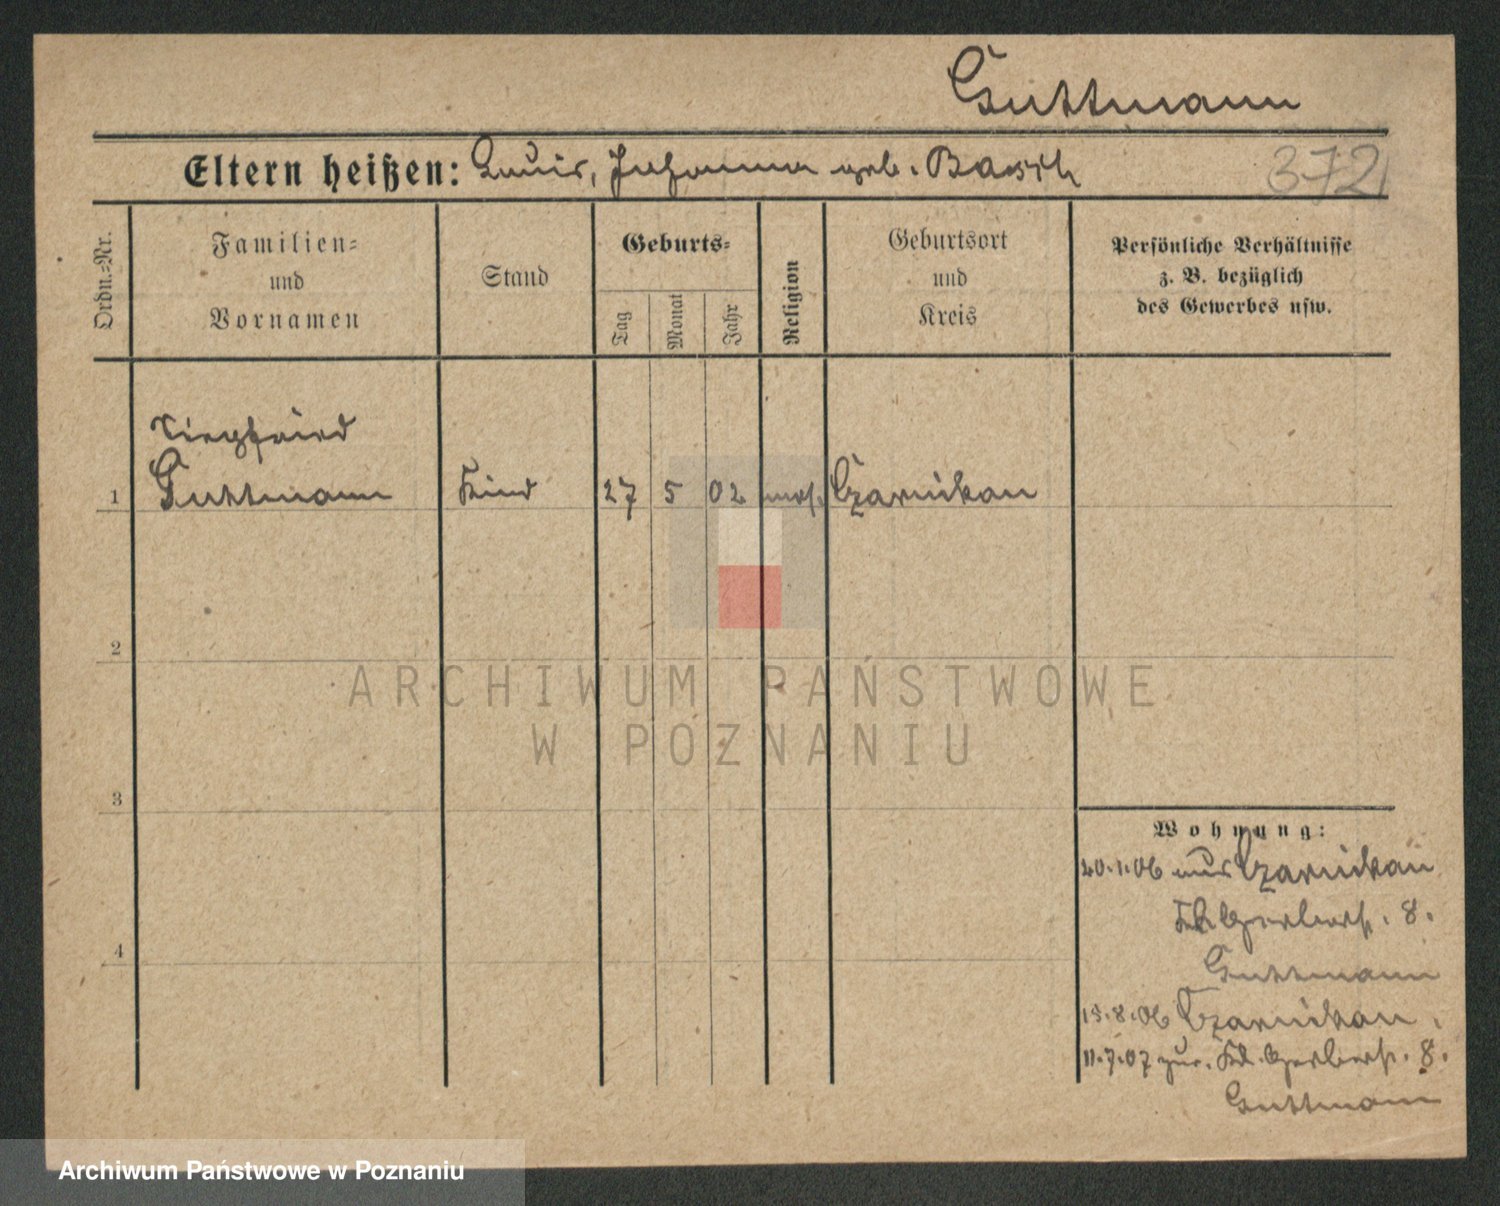 Guttmann
Eltern heißen: Louis, Johanna geb. Basch
372
Ordn.=Nr.
Familien=
und
Vornamen
Stand
Geburts=
Tag
Monat
Jahr
Religion
Geburtsort
und
Kreis
Persönliche Verhältnisse
z. B. bezüglich
des Gewerbes usw.
Siegfried
1 Guttmann Kind 27 5 02 mos. Czarnikau
2
3
4
Wohnung:
20.1.06 aus Czarnikau
Kl. Gerberst. 8.
Guttmann
15.8.06 Czarnikau.
11.7.07 zur. Kl. Gerberst. 8.
Guttmann
ARCHIWUM PAŃSTWOWE
W POZNANIU
Archiwum Państwowe w Poznaniu